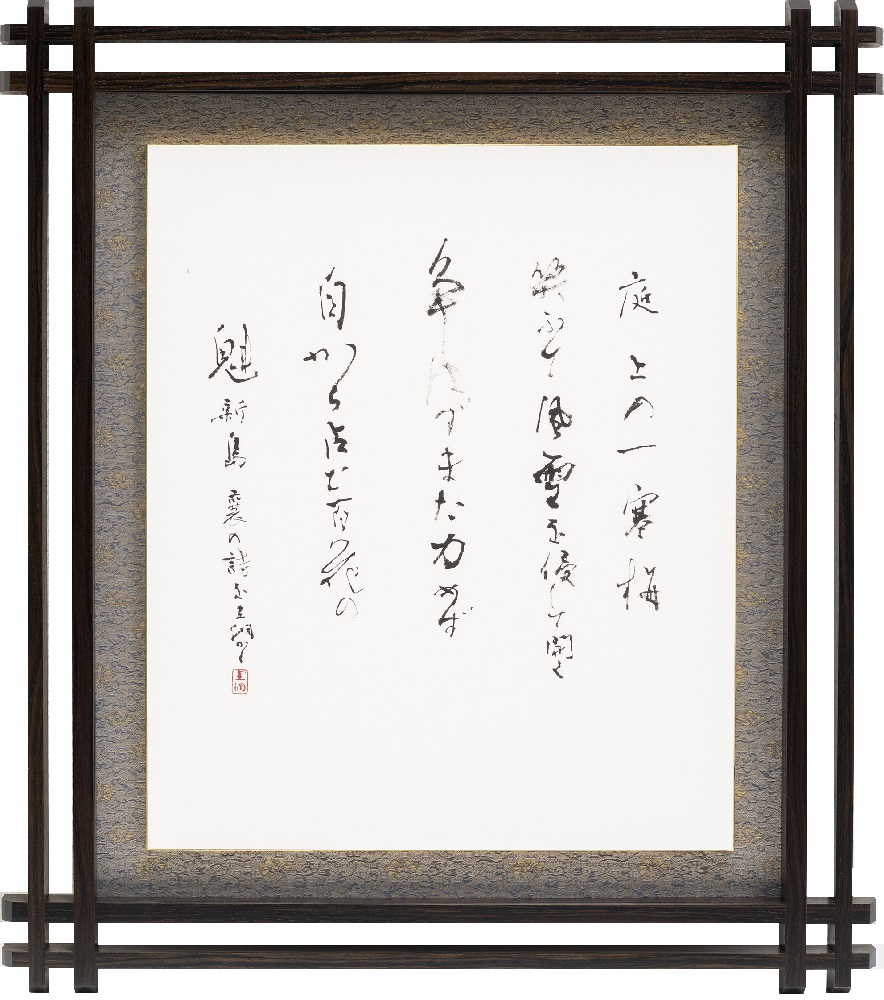 庭上の一寒梅
笑ふて風雪を侵して開く
争はずまた力めず
自から占む百花の
魁 新島襄の詩を